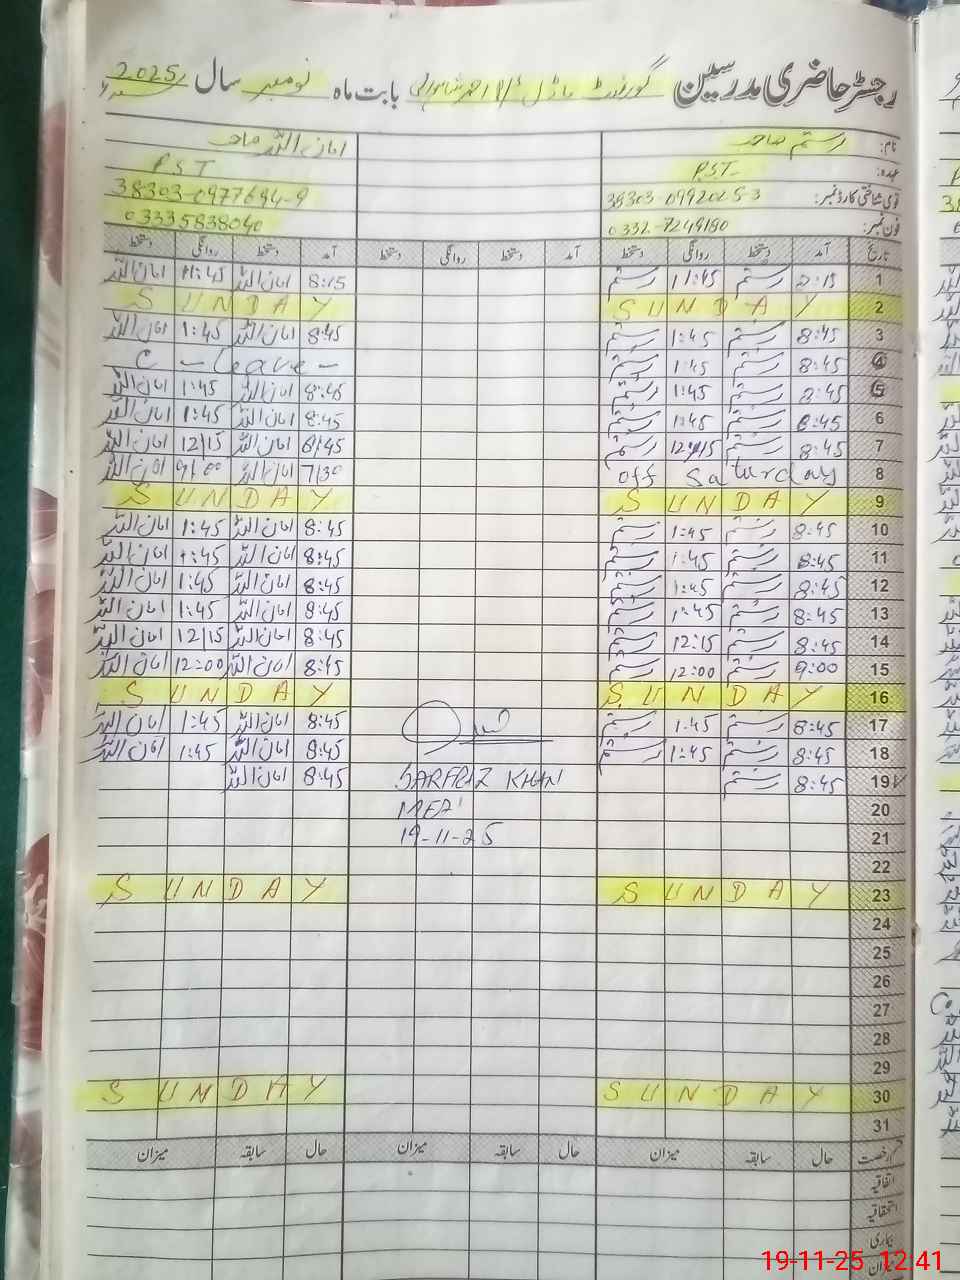 رجسٹر حاضری مدرسین گورنمنٹ ماڈل بابت ماہ نومبر سال 2025ء
نام: رستم صاحب امان اللہ صاحب
عہدہ: P.S.T P.S.T
قومی شناختی کارڈ نمبر: 38303-0992025-3 38303-0977694-9
فون نمبر: 0332-7249190 03335838040
تاریخ آمد دستخط روانگی دستخط آمد دستخط روانگی دستخط آمد دستخط روانگی دستخط
1 رستم 11:45 رستم 8:15 امان اللہ 11:45 امان اللہ
2 SUNDAY SUNDAY
3 8:45 رستم 1:45 رستم 8:45 امان اللہ 1:45 امان اللہ
4 8:45 رستم 1:45 رستم C-Leave-
5 8:45 رستم 1:45 رستم 8:45 امان اللہ 1:45 امان اللہ
6 8:45 رستم 1:45 رستم 8:45 امان اللہ 1:45 امان اللہ
7 8:45 رستم 12:15 رستم 8/45 امان اللہ 12/15 امان اللہ
8 off Saturday 7/30 امان اللہ 9/00 امان اللہ
9 SUNDAY SUNDAY
10 8:45 رستم 1:45 رستم 8:45 امان اللہ 1:45 امان اللہ
11 8:45 رستم 1:45 رستم 8:45 امان اللہ 1:45 امان اللہ
12 8:45 رستم 1:45 رستم 8:45 امان اللہ 1:45 امان اللہ
13 8:45 رستم 1:45 رستم 8:45 امان اللہ 1:45 امان اللہ
14 8:45 رستم 12:15 رستم 8:45 امان اللہ 12/15 امان اللہ
15 9:00 رستم 12:00 رستم 8:45 امان اللہ 12:00 امان اللہ
16 SUNDAY SUNDAY
17 8:45 رستم 1:45 رستم 8:45 امان اللہ 1:45 امان اللہ
18 8:45 رستم 1:45 رستم 8:45 امان اللہ 1:45 امان اللہ
19 8:45 رستم SARFRAZ KHAN 8:45 امان اللہ
20 MEA
21 19-11-25
22
23 SUNDAY SUNDAY
24
25
26
27
28
29
30 SUNDAY SUNDAY
31
قسم رخصت حال سابقہ میزان حال سابقہ میزان حال سابقہ میزان
اتفاقیہ
استحقاقیہ
بیماری
میزان
19-11-25 12:41